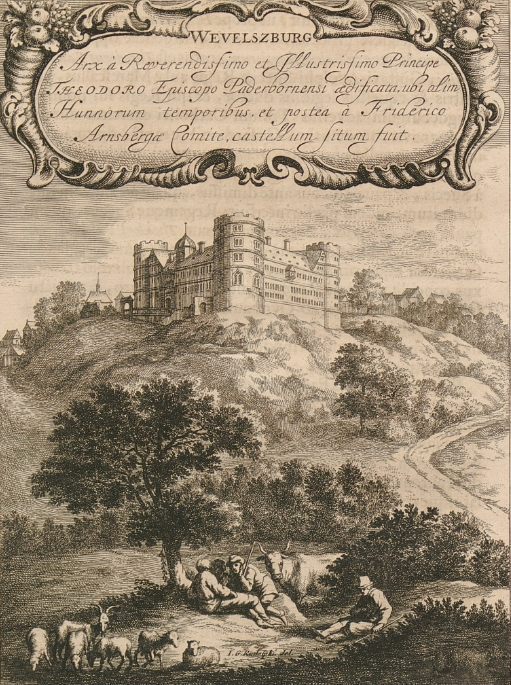 WEVELSZBURG
Arx à Reverendissimo et Illustrissimo Principe
THEODORO Episcopo Paderbornensi ædificata, ubi olim
Hunnorum temporibus, et postea à Friderico
Arnsbergæ Comite, castellum situm fuit.
del